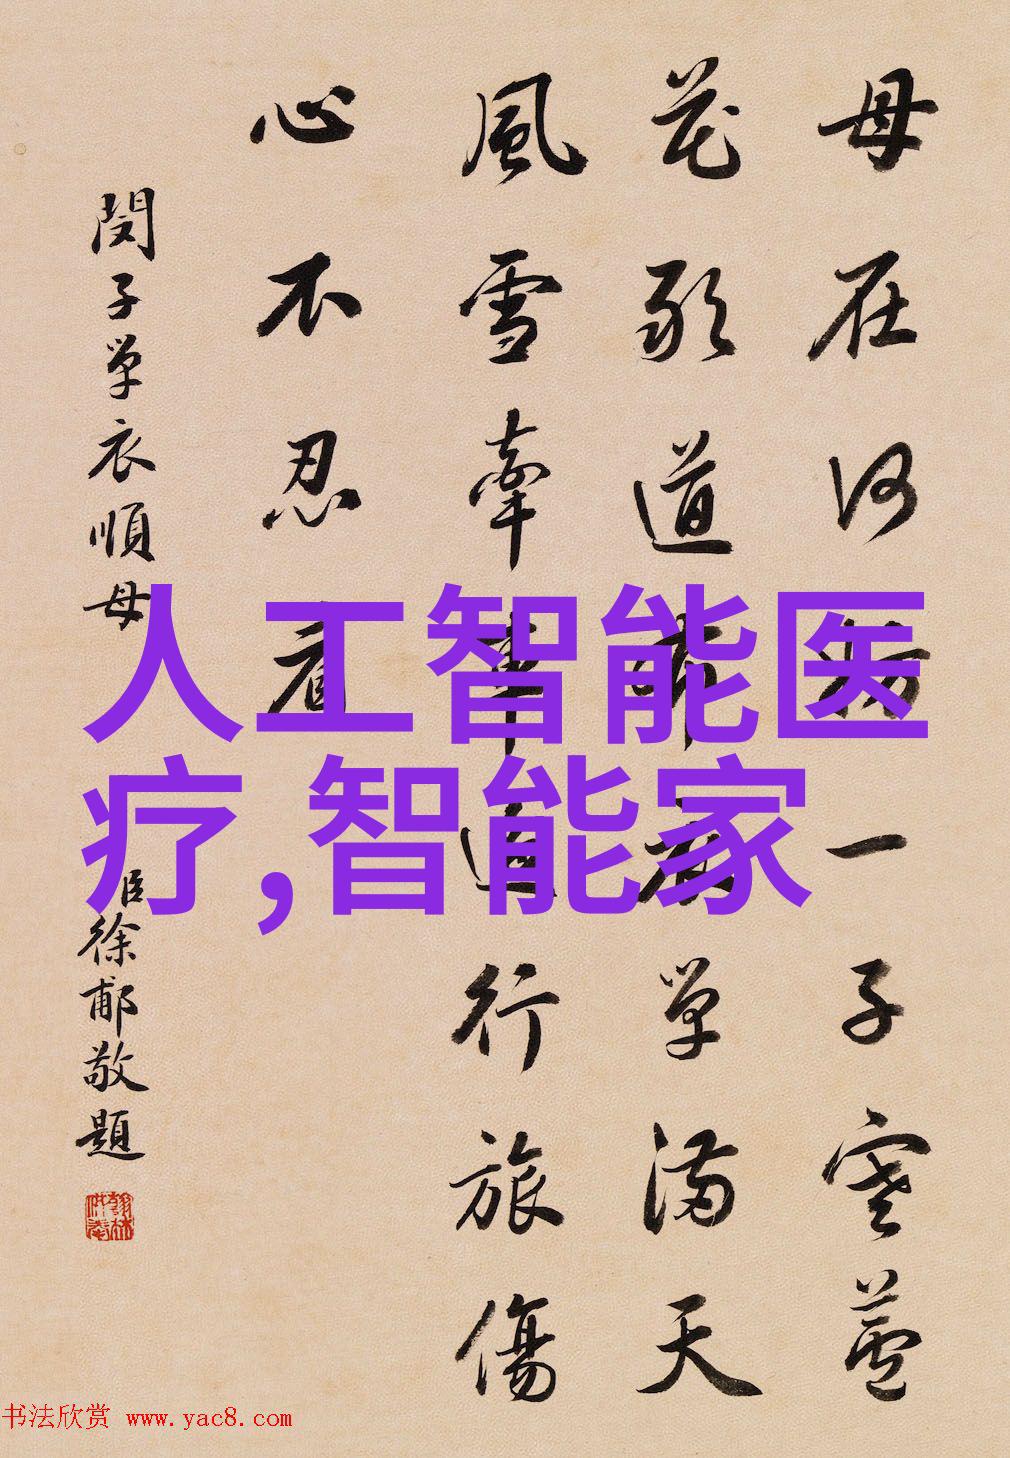 母在何妨一子寒蘆
花道單滿天
風雪牽車迫行旅傷
心不忍看
閔子單衣順母
臣徐郙敬題
人工智能医
疗,智能家
书法欣赏 www.yac8.com